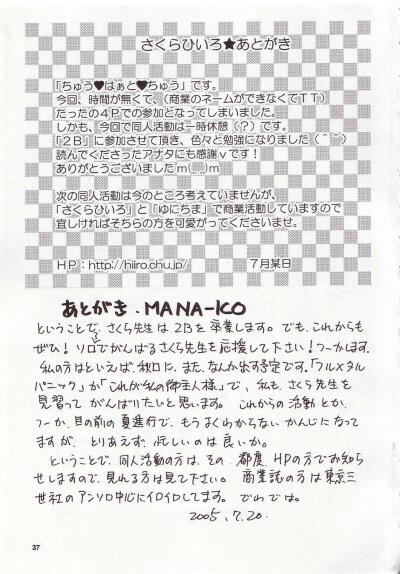 さくらひいろ★あとがき
「ちゅう♥はぁと♥ちゅう」です。
今回、時間が無くて、(商業のネームができなくてTT)
たったの4Pでの参加となってしまいました。
しかも、今回で同人活動は一時休憩(?)です。
「2B」に参加させて頂き、色々と勉強になりました(^^)
読んでくださったアナタにも感謝vです!
ありがとうございましたm(__)m
次の同人活動は今のところ考えていませんが、
「さくらひいろ」と「ゆにちま」で商業活動していますので
宜しければそちらの方を可愛がってくださいませ。
HP:http://hiiro.chu.jp/ 7月某日
あとがき.MANA-ICO
ということで、さくら先生は2Bを卒業します。でも、これからも
ぜひ!ソロでがんばるさくら先生を応援して下さい!つーかします。
私の方はといえば、秋口に、また、なんか出す予定です。「フルメタル
パニック」か「これが私の御主人様」で、私も、さくら先生を
見習ってがんばりたいと思います。これからの活動とか、
つーか、目の前の夏進行で、もうよくわからないかんじになって
ますが、とりあえず、忙しいのは良いか。
ということで、同人活動の方は、その都度HPの方でお知ら
せしますので、見れる方は見て下さい。商業誌の方は東京三
世社のアンソロ中心にイロイロしてます。でわでは。
2005.7.20.
37